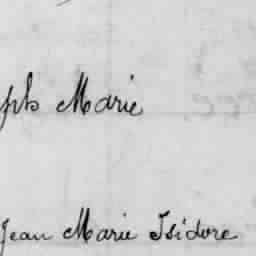 Marie
Jean Marie Isidore